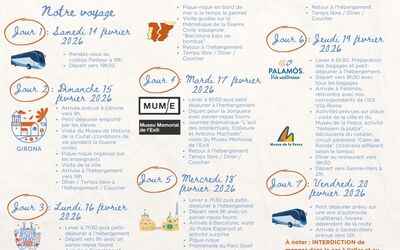 Notre voyage
Jour 1 : Samedi 14 février
2026
• Rendez-vous au
collège Pasteur à 19h.
• Départ vers 19h30
Jour 2 : Dimanche 15
février 2026
• Arrivée entrée à Gérone
vers 9h.
• Petit-déjeuner emporté
par les élèves.
• Visite du Museu de Historia
de la Ciutat (conditions de
vie pendant la Guerre
civile)
• Pique-nique organisé par
les enseignants
• Visite de la ville
• Arrivée à l'hébergement
vers 19h
• Dîner / Temps libre à
l'hébergement / Coucher
GIRONA
Jour 3 : Lundi 16 février
2026
• Lever à 7h30 puis petit-
déjeuner à l'hébergement
• Départ vers 9h avec un
panier-repas fourni
Pique-nique en bord de
mer si le temps le permet
• Visite guidée sur la
thématique de la Guerre
Civile espagnole
"Barcelona bajo las
bombas"
• Retour à l'hébergement
• Temps libre / Dîner /
Coucher
Jour 4 : Mardi 17 février
2026
• Lever à 6h50 puis petit-
déjeuner à l'hébergement
• Départ pour la Jonquera
avec panier-repas fournis
• Journée thématique "L'exil
des intellectuels, Colliure
et Antonio Machado",
visite du Museu Memorial
de l'Exili
• Retour à l'hébergement
• Temps libre / Dîner /
Coucher
MUM/E
Museu Memorial
de l'Exili
Jour 5 : Mercredi 18
février 2026
• Lever à 7h30 puis petit-
déjeuner à l'hébergement
• Départ vers 9h avec un
panier-repas fourni
• Arrivée à Barcelone, visite
du Poble Espanyol et
activité surprise
• Promenade au Parc Güell
Retour à l'hébergement
• Temps libre / Dîner /
Coucher
Jour 6 : Jeudi 19 février
2026
• Lever à 6h30. Préparation
des bagages et petit-
déjeuner à l'hébergement
• Départ vers 8h20 avec
tous les bagages
• Arrivée à Palamós,
rencontre avec nos
correspondants de l'IES
Vila-Romà
• Activités prévues sur place
: visite de la ville et du
Museu de la Pesca, atelier
"Nebem la pesquera",
découverte du catalan,
circuit pédestre "Camí de
Ronda" (itinéraire différent
selon le temps)
• Dîner au restaurant vers
19h30
• Départ vers Gennevilliers à
21h
PALAMÓS.
Museu de la Pesca
Jour 7 : Vendredi 20
février 2026
• Petit déjeuner prévu sur
une aire d'autoroute
(cafétéria), horaire
dépendant du trajet en car
• Arrivée à Gennevilliers
prévue vers 12h.
À noter : INTERDICTION de